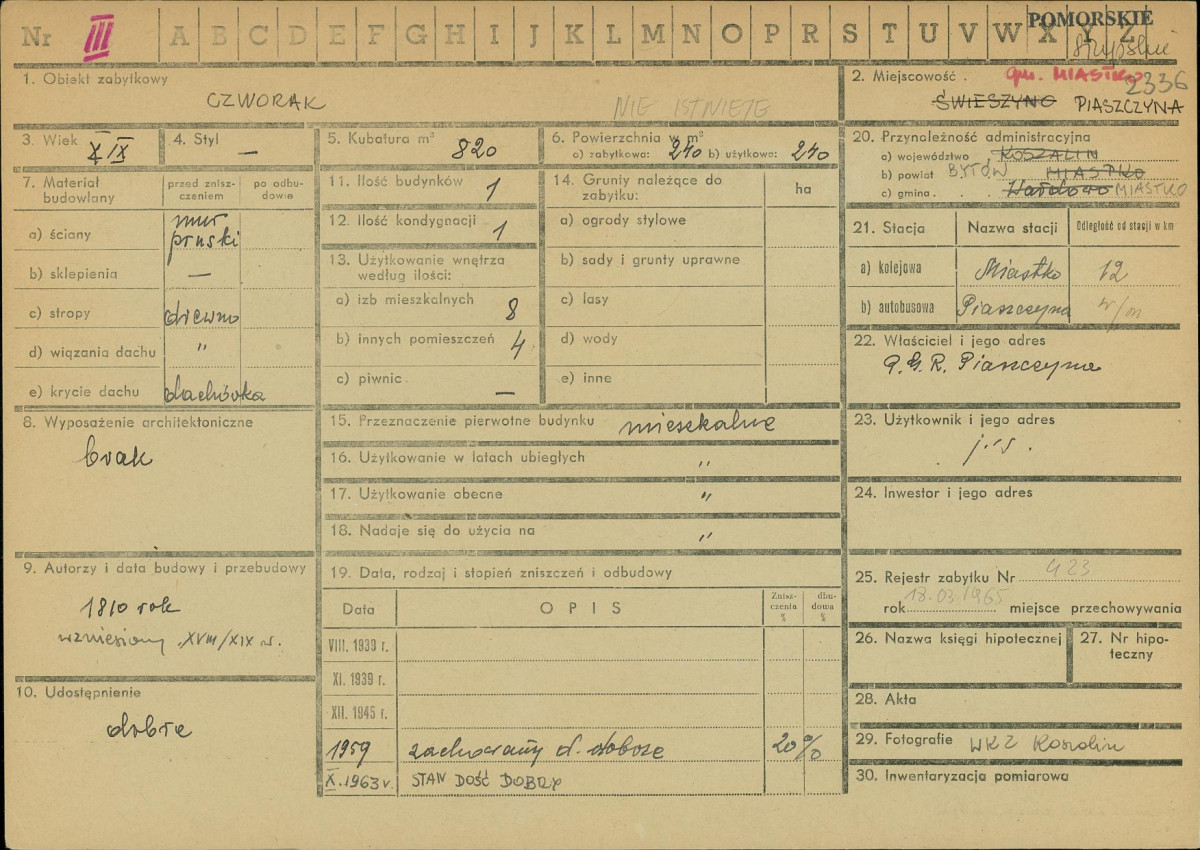 Nr III A B C D E F G H I J K L M N O P R S T U V W X Y Z
POMORSKIE
słupskie
1. Obiekt zabytkowy
CZWORAK
NIE ISTNIEJE
2. Miejscowość
gm. MIASTKO
2336
ŚWIESZYNO PIASZCZYNA
3. Wiek
XIX
4. Styl
—
5. Kubatura m³ 820
6. Powierzchnia w m²
a) zabytkowa: 240 b) użytkowa: 240
7. Materiał budowlany
przed zniszczeniem
po odbudowie
a) ściany mur pruski
b) sklepienia —
c) stropy drewno
d) wiązania dachu "
e) krycie dachu dachówka
8. Wyposażenie architektoniczne
brak
9. Autorzy i data budowy i przebudowy
1810 rok
wzniesiony XVIII/XIX w.
10. Udostępnienie
dobre
11. Ilość budynków 1
12. Ilość kondygnacji 1
13. Użytkowanie wnętrza
według ilości:
a) izb mieszkalnych 8
b) innych pomieszczeń 4
c) piwnic —
14. Grunty należące do
zabytku:
ha
a) ogrody stylowe
b) sady i grunty uprawne
c) lasy
d) wody
e) inne
15. Przeznaczenie pierwotne budynku mieszkalne
16. Użytkowanie w latach ubiegłych "
17. Użytkowanie obecne "
18. Nadaje się do użycia na "
19. Data, rodzaj i stopień zniszczeń i odbudowy
Data
OPIS
Zniszczenia %
dbudowa %
VIII. 1939 r.
XI. 1939 r.
XII. 1945 r.
1959 zachowany d. dobrze 20%
X. 1963 r. STAN DOŚĆ DOBRY
20. Przynależność administracyjna
a) województwo KOSZALIN
b) powiat BYTÓW MIASTKO
c) gmina MIASTKO
21. Stacja
Nazwa stacji
Odległość od stacji w km
a) kolejowa Miastko 12
b) autobusowa Piaszczyna w/m
22. Właściciel i jego adres
P.G.R. Piaszczyna
23. Użytkownik i jego adres
j.w.
24. Inwestor i jego adres
25. Rejestr zabytku Nr 423
rok 18.03.1965 miejsce przechowywania
26. Nazwa księgi hipotecznej
27. Nr hipoteczny
28. Akta
29. Fotografie WKZ Koszalin
30. Inwentaryzacja pomiarowa